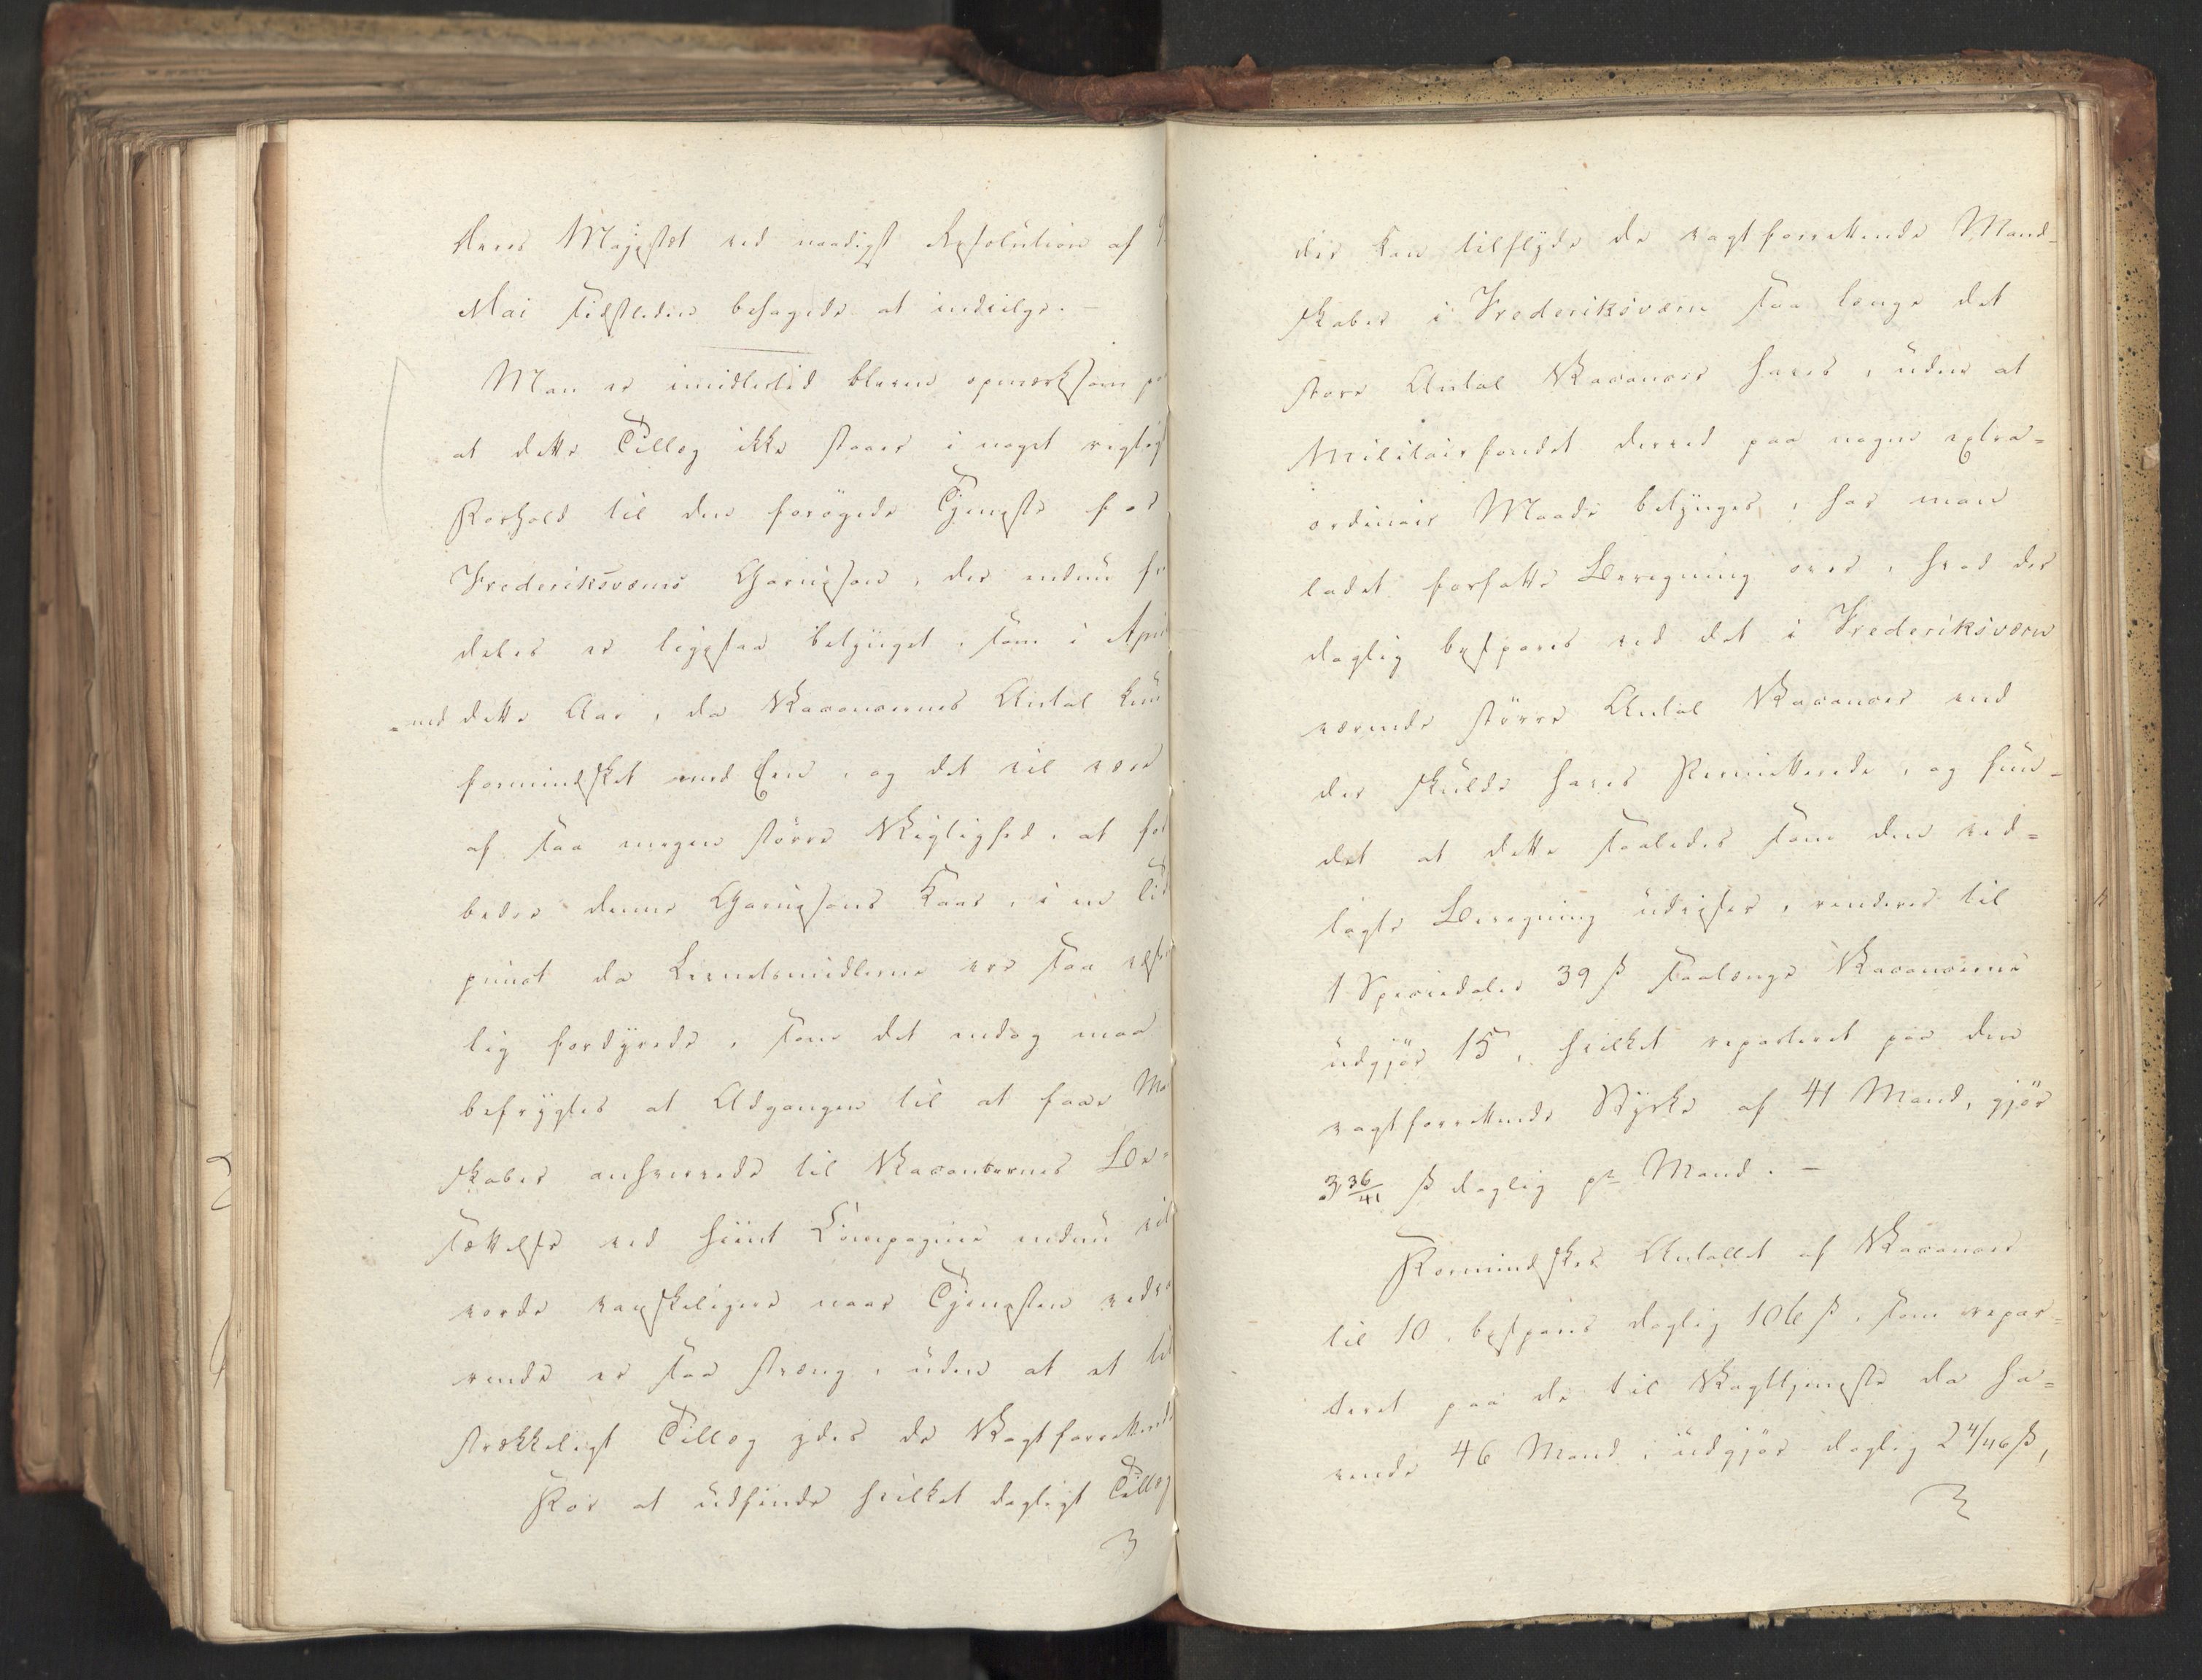 Deres Majestæt ved naadigst Resolution af
Mai sidstleden behagede at indvilge. —
Man er imidlertid bleven opmærksom pa
at dette Tillæg ikke staaer i noget rigtigt
Forhold til den forøgede Tjeneste for
Frederiksværns Garnison, der endnu fr
deles er ligesaa betynget, som i Apri
med dette Aar, da Vacancernes Antal kun
formindsket med Een, og det vil være
af saa megen større Vigtighed, at for
bedre denne Garnisons Kaar, i en Tid
punct da Levnetsmidlerne ere saa væsent
lig fordyrede, som det endog maa
befrygtes at Adgangen til at faae Ma
skaber anhvervede til Vacancernes Be=
sættelse ved hiint Compagnie endnu vil
vorde vanskeligere naar Tjenesten vedva
rende er saa streng, uden at et til
strækkeligt Tillæg ydes de Vagtforrettende
For at udfinde hvilket dagligt Tillæg
der kan tilflyde de vagtforrettende Mand-
skaber i Frederiksværn saa længe det
store Antal Vacancer haves, uden at
Militairfondet derved paa nogen extra=
ordinair Maade betynges, har man
ladet forfatte Beregning over, hvad der
daglig bespares ved det i Frederiksværn
værende større Antal Vacancer end
der skulde haves Permitterede, og fun-
det at dette saaledes som den ved=
lagte Beregning udviser, renderer til
1 Speciedaler 39 ß saalænge Vacancerne
udgjør 15, hvilket reparteret paa den
vagtforrettende Styrke af 41 Mand, gjør
3 36/41 ß daglig pr Mand. —
Formindskes Antallet af Vacancer
til 10, bespares daglig 106 ß, som repar=
teret paa de til Vagttjeneste da ha=
vende 46 Mand, udgjør daglig 2 4/46 ß,